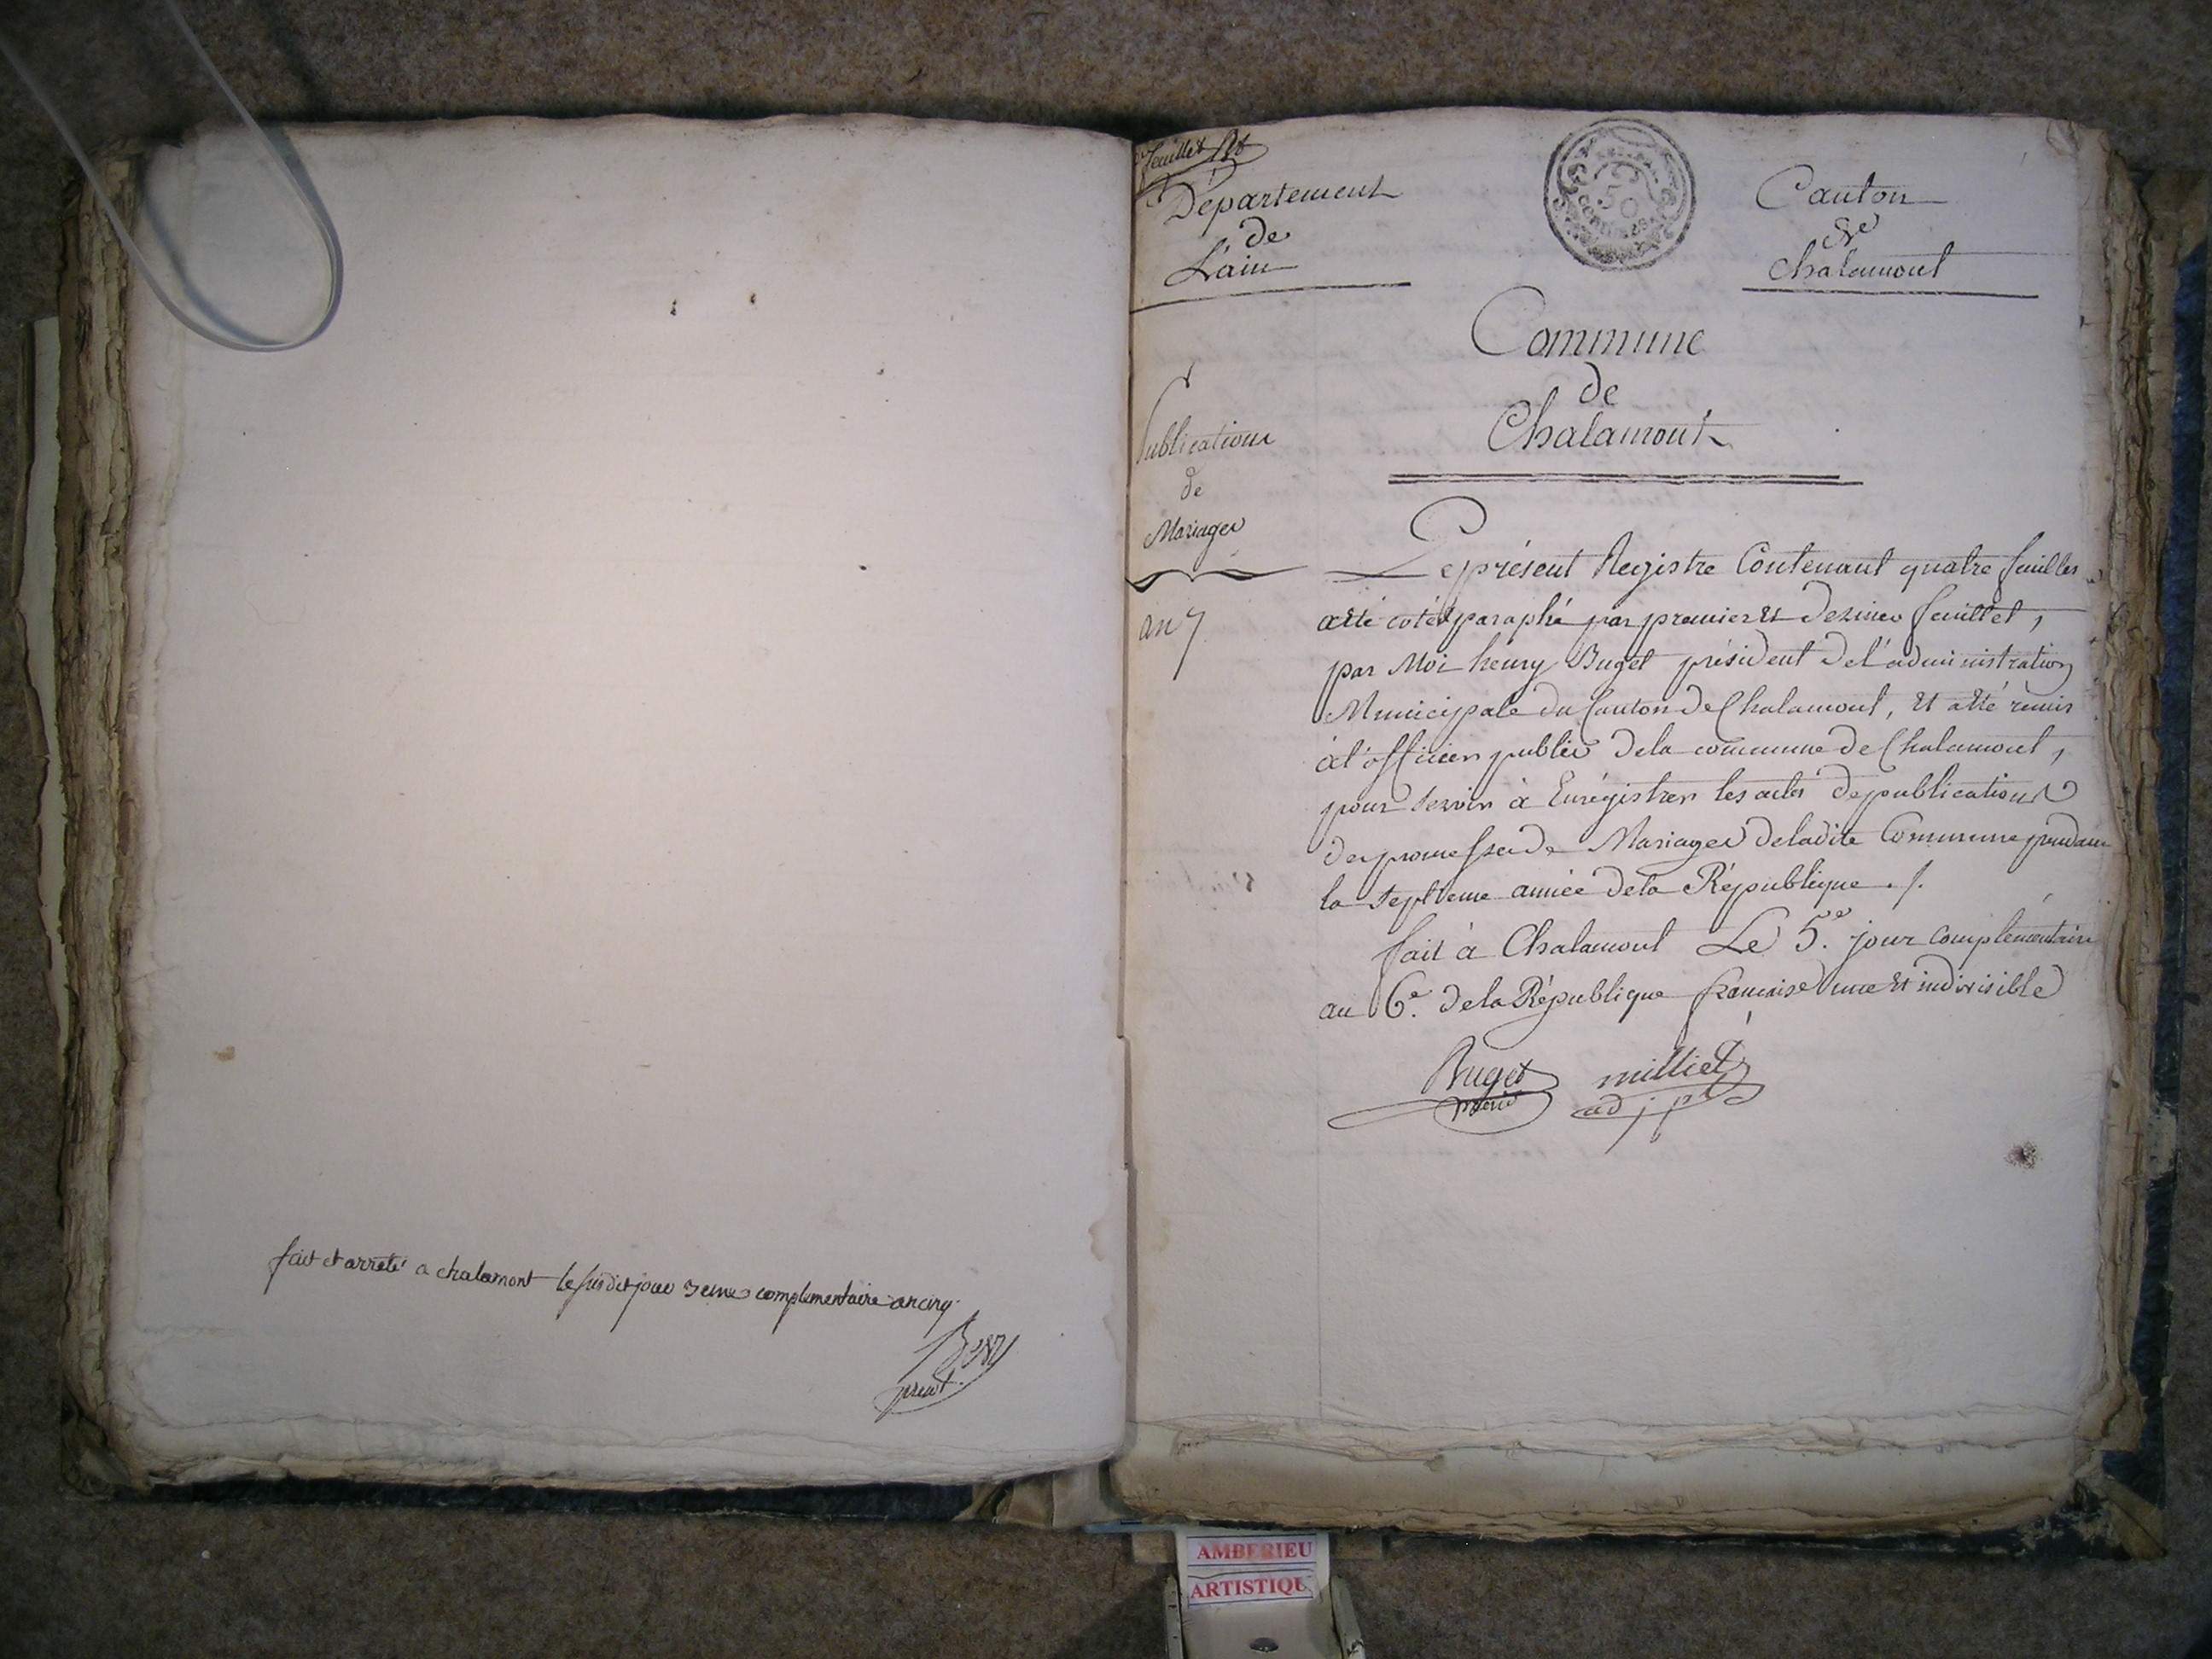 fait et arreté a chalamont le susdit jour 3eme complementaire an cinq
pre. dt.
feuillet
Département
de
L'ain
50
centimes
Canton
de
Chalamont
Commune
de
Chalamont
Publications
de
Mariages
an 7
Le présent Registre Contenant quatre feuilles
a été coté & paraphé par premier et dernier feuillet,
par Moi henry Buget président de l'administration
Municipale du Canton de Chalamont, et a été remis
à l'officier public de la commune de Chalamont,
pour servir à Enrégistrer les actes de publications
des promesses de Mariages de ladite Commune pendant
la septieme année de la République ./.
fait à Chalamont Le 5.e jour complémentaire
an 6.e de la République française une et indivisible
Buget milliet
AMBERIEU
ARTISTIQU